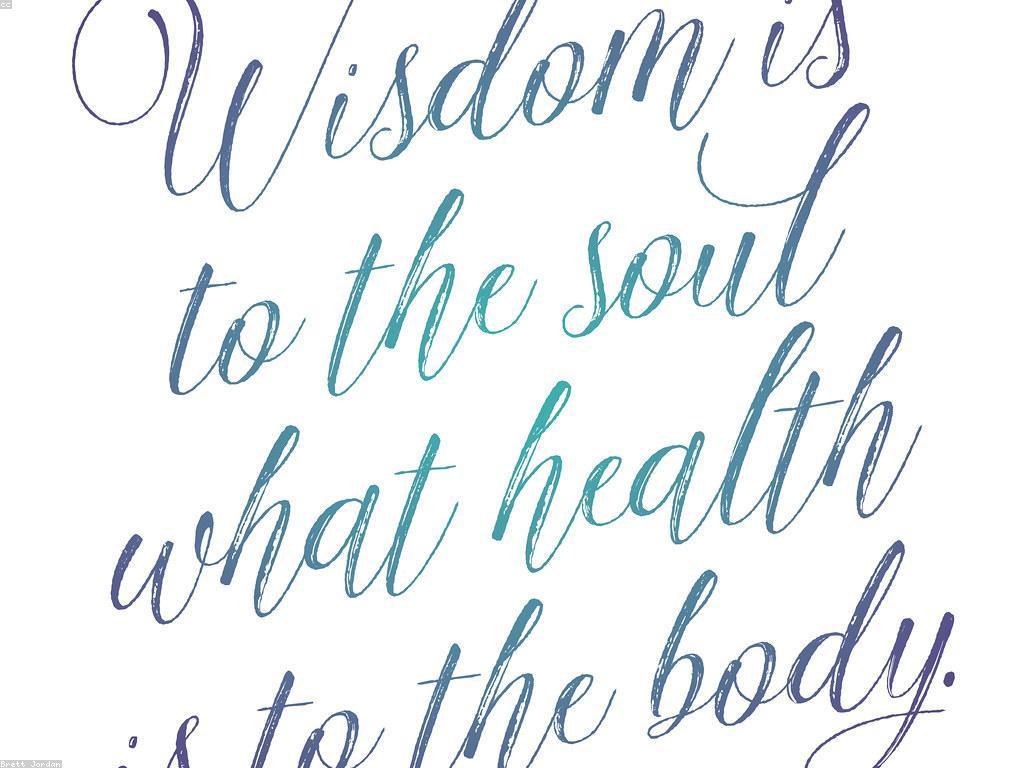 cc
Wisdom is
to the soul
what health
is to the body.
Brett Jordan